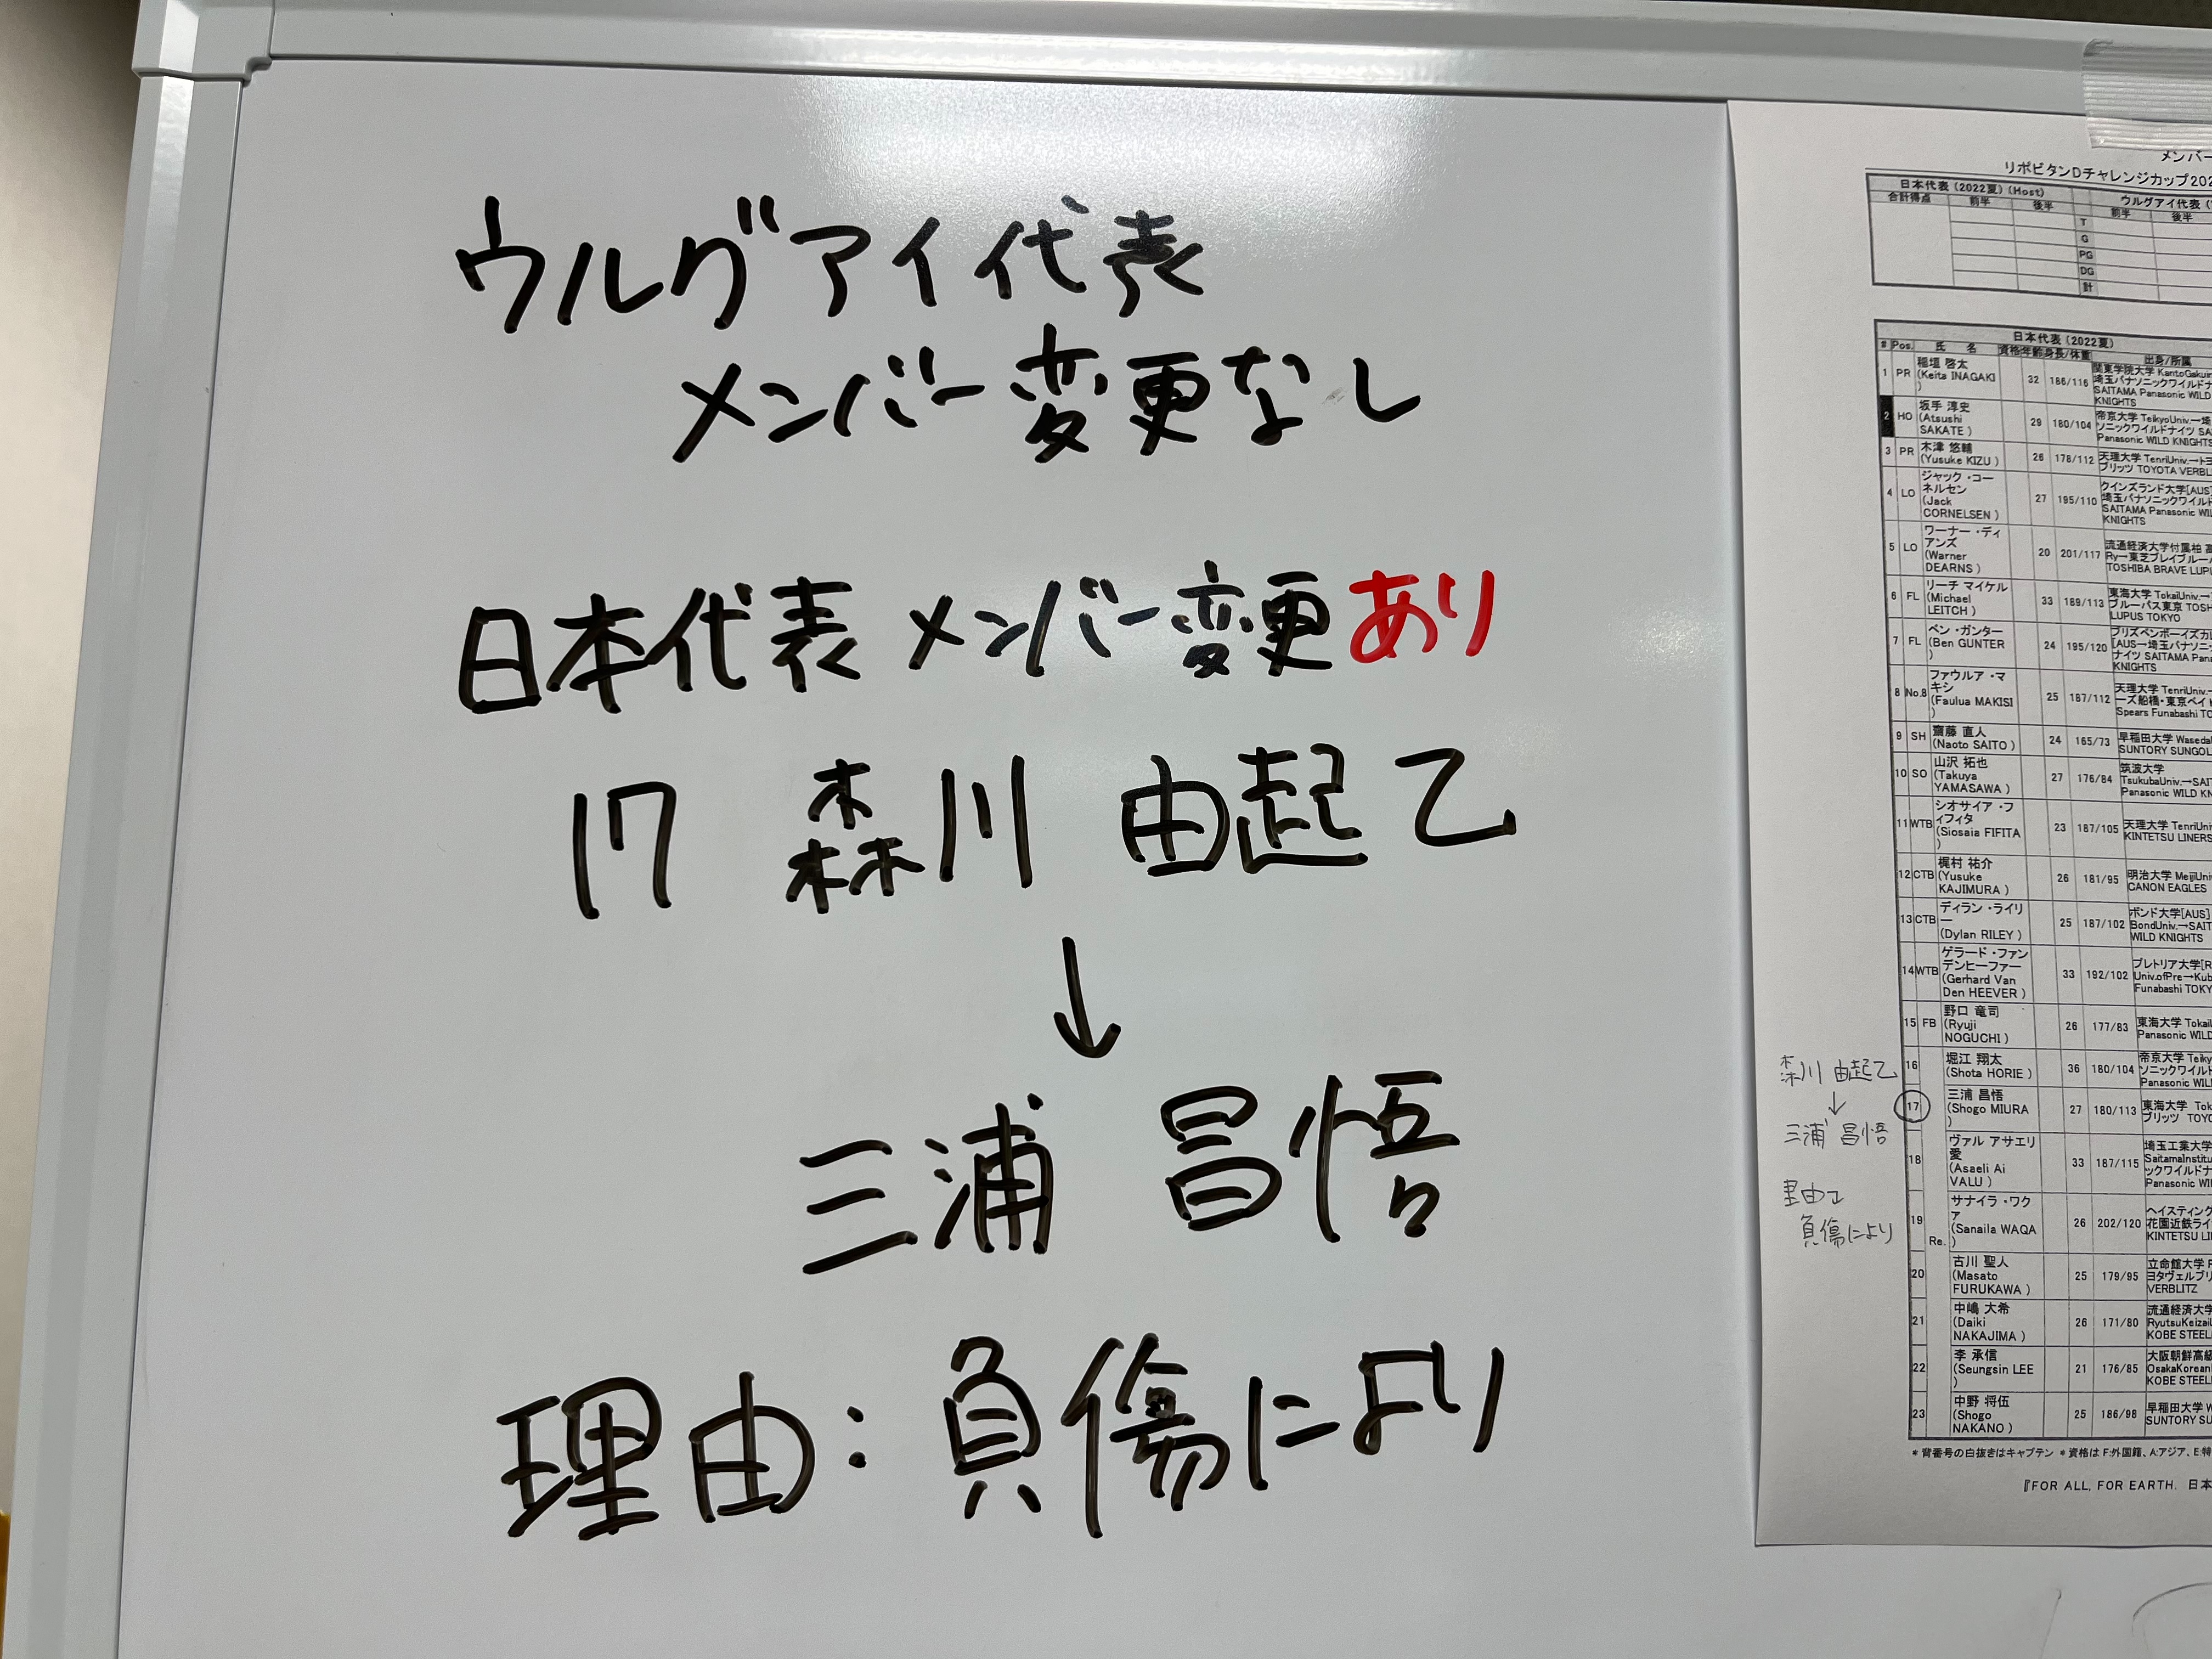 ウルグアイ代表
メンバー変更なし
日本代表 メンバー変更あり
17 森川 由起乙
↓
三浦 昌悟
理由:負傷により
メンバー
リポビタンDチャレンジカップ202
日本代表 (2022夏) (Host)
ウルグアイ代表 (
合計得点 前半 後半 前半 後半
T
G
PG
DG
計
日本代表 (2022夏)
# Pos. 氏 名 資格 年齢 身長/体重 出身/所属
1 PR 稲垣 啓太 (Keita INAGAKI ) 32 186/116
関東学院大学 KantoGakuin
埼玉パナソニックワイルドナ
SAITAMA Panasonic WILD
KNIGHTS
2 HO 坂手 淳史 (Atsushi SAKATE ) 29 180/104
帝京大学 TeikyoUniv.→埼
ソニックワイルドナイツ SA
Panasonic WILD KNIGHTS
3 PR 木津 悠輔 (Yusuke KIZU ) 26 178/112
天理大学 TenriUniv.→トヨ
ブリッツ TOYOTA VERBLI
4 LO ジャック・コーネルセン (Jack CORNELSEN ) 27 195/110
クインズランド大学[AUS]
埼玉パナソニックワイルド
SAITAMA Panasonic WIL
KNIGHTS
5 LO ワーナー・ディアンズ (Warner DEARNS ) 20 201/117
流通経済大学付属柏 高
Ry→東芝ブレイブルー
TOSHIBA BRAVE LUPU
6 FL リーチ マイケル (Michael LEITCH ) 33 189/113
東海大学 TokaiUniv.→
ブルーパス東京 TOSH
LUPUS TOKYO
7 FL ベン・ガンター (Ben GUNTER ) 24 195/120
ブリズベンボーイズカレ
[AUS→埼玉パナソニッ
ナイツ SAITAMA Pana
KNIGHTS
8 No.8 ファウルア・マキシ (Faulua MAKISI ) 25 187/112
天理大学 TenriUniv.→
ーズ船橋・東京ベイ
Spears Funabashi TO
9 SH 齋藤 直人 (Naoto SAITO ) 24 165/73
早稲田大学 Waseda
SUNTORY SUNGOL
10 SO 山沢 拓也 (Takuya YAMASAWA ) 27 176/84
筑波大学
TsukubaUniv.→SAIT
Panasonic WILD KN
11 WTB シオサイア・フィフィタ (Siosaia FIFITA ) 23 187/105
天理大学 TenriUni
KINTETSU LINERS
12 CTB 梶村 祐介 (Yusuke KAJIMURA ) 26 181/95
明治大学 MeijiUni
CANON EAGLES
13 CTB ディラン・ライリー (Dylan RILEY ) 25 187/102
ボンド大学[AUS]
BondUniv.→SAIT
WILD KNIGHTS
14 WTB ゲラード・ファンデンヒーファー (Gerhard Van Den HEEVER ) 33 192/102
プレトリア大学[R
Univ.ofPre→Kub
Funabashi TOKY
15 FB 野口 竜司 (Ryuji NOGUCHI ) 26 177/83
東海大学 Tokai
Panasonic WILD
16 堀江 翔太 (Shota HORIE ) 36 180/104
帝京大学 Teiky
ソニックワイルド
Panasonic WIL
17 三浦 昌悟 (Shogo MIURA ) 27 180/113
東海大学 Tok
ブリッツ TOYO
18 ヴァル アサエリ愛 (Asaeli Ai VALU ) 33 187/115
埼玉工業大学
SaitamaInstitu
ックワイルドナ
Panasonic WI
19 サナイラ・ワクァ (Sanaila WAQA ) 26 202/120
ヘイスティング
花園近鉄ライ
KINTETSU LI
Re.
20 古川 聖人 (Masato FURUKAWA ) 25 179/95
立命館大学 R
ヨタヴェルブリ
VERBLITZ
21 中嶋 大希 (Daiki NAKAJIMA ) 26 171/80
流通経済大学
RyutsuKeizai
KOBE STEEL
22 李 承信 (Seungsin LEE ) 21 176/85
大阪朝鮮高級
OsakaKorean
KOBE STEEL
23 中野 将伍 (Shogo NAKANO ) 25 186/98
早稲田大学 W
SUNTORY SU
森川 由起乙
↓
三浦 昌悟
理由は
負傷により
* 背番号の白抜きはキャプテン * 資格は F:外国籍、A:アジア、E:特
『FOR ALL, FOR EARTH. 日本